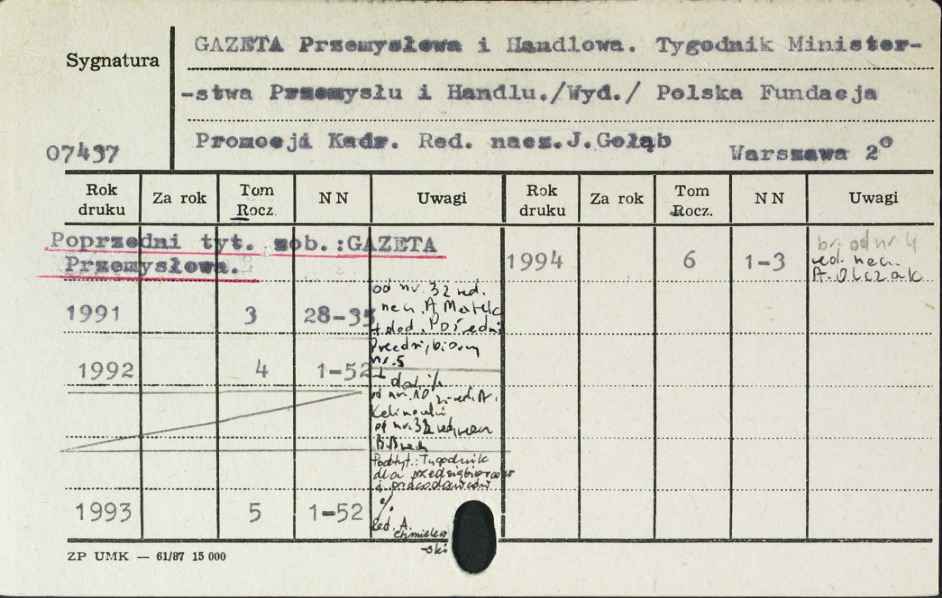 Sygnatura
GAZETA Przemysłowa i Handlowa. Tygodnik Minister-
-stwa Przemysłu i Handlu./Wyd./ Polska Fundacja
Promocji Kadr. Red. nacz.J.Gołąb
07437
Warszawa 2°
Rok druku Za rok Tom Rocz. NN Uwagi Rok druku Za rok Tom Rocz. NN Uwagi
Poprzedni tyt. zob.:GAZETA
Przemysłowa.
1994 6 1-3
br. od nr 4
red. nacz.
A. Olczak
1991 3 28-35
od nr. 32 red.
nacz. A.
+ dod.
nr. 5
1992 4 1-52
+ dod. j/w
od nr. 32 red. nacz.
Podtyt.: Tygodnik
dla przedsiębiorców
i pracodawców
1993 5 1-52
%
Red. A.
Chmielew
-ski
ZP UMK — 61/87 15 000